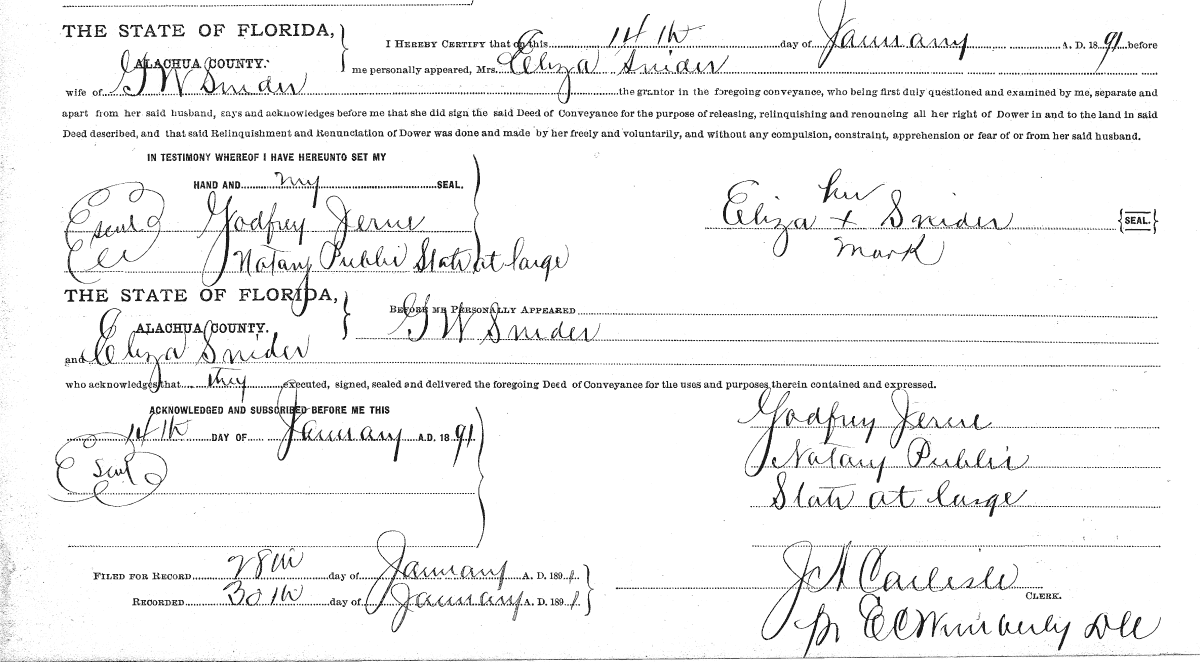 THE STATE OF FLORIDA,
ALACHUA COUNTY.
I HEREBY CERTIFY that on this 14th day of January A. D. 1891 before
me personally appeared, Mrs. Eliza Snider
wife of G W Snider the grantor in the foregoing conveyance, who being first duly questioned and examined by me, separate and
apart from her said husband, says and acknowledges before me that she did sign the said Deed of Conveyance for the purpose of releasing, relinquishing and renouncing all her right of Dower in and to the land in said
Deed described, and that said Relinquishment and Renunciation of Dower was done and made by her freely and voluntarily, and without any compulsion, constraint, apprehension or fear of or from her said husband.
IN TESTIMONY WHEREOF I HAVE HEREUNTO SET MY
HAND AND my SEAL.
seal Godfrey
Notary Public State at large
her
Eliza + Snider {SEAL.}
mark
THE STATE OF FLORIDA,
ALACHUA COUNTY.
BEFORE ME PERSONALLY APPEARED
G W Snider
and Eliza Snider
who acknowledges that they executed, signed, sealed and delivered the foregoing Deed of Conveyance for the uses and purposes therein contained and expressed.
ACKNOWLEDGED AND SUBSCRIBED BEFORE ME THIS
14th DAY OF January A.D. 1891
seal
Godfrey
Notary Public
State at large
FILED FOR RECORD 28th day of January A. D. 1891
RECORDED 30th day of January A. D. 1891
J A Carlisle
CLERK.
pr E C Wimberly DC